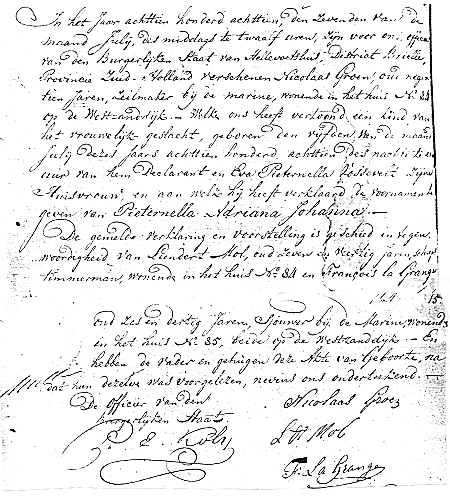 In het Jaar achttien honderd achttien, den Zevenden van de
maand Julij, des middags te twaalf uren, Zijn voor ons, officier
van den Burgerlijken Staat van Hellevoetsluis, District Brielle,
Provincie Zuid-Holland verschenen Nicolaas Groen, oud negen
tien Jaren, Zeilmaker bij de marine, wonende in het huis No. 83
op de Westzanddijk. — Welke ons heeft vertoond een kind van
het vrouwelijk geslacht, geboren den vijfden van de maand
Julij dezes jaars achttien honderd achttien, des nachts te een
uur van hem Declarant en Eva Pieternella Zijne
Huisvrouw, en aan welk hij heeft verklaard de voornamen te
geven van Pieternella Adriana Johanna. —
De gemelde verklaring en voorstelling is geschied in tegen,
woordigheid van Leendert Mol, oud Zeven en veertig jaren, scheeps
timmerman, wonende in het huis No. 84 en François la Grange
15
oud Zes en dertig Jaren, Sjouwer bij de Marine, wonende
in het huis No. 85, beide op de Westzanddijk. — En
hebben de Vader en getuigen deze Acte van Geboorte, na
dat hun dezelve was voorgelezen, nevens ons ondertekend. —
De Officier van den
Burgerlijken Staat
Nicolaas Groen
Ldt Mol
F. La Grange